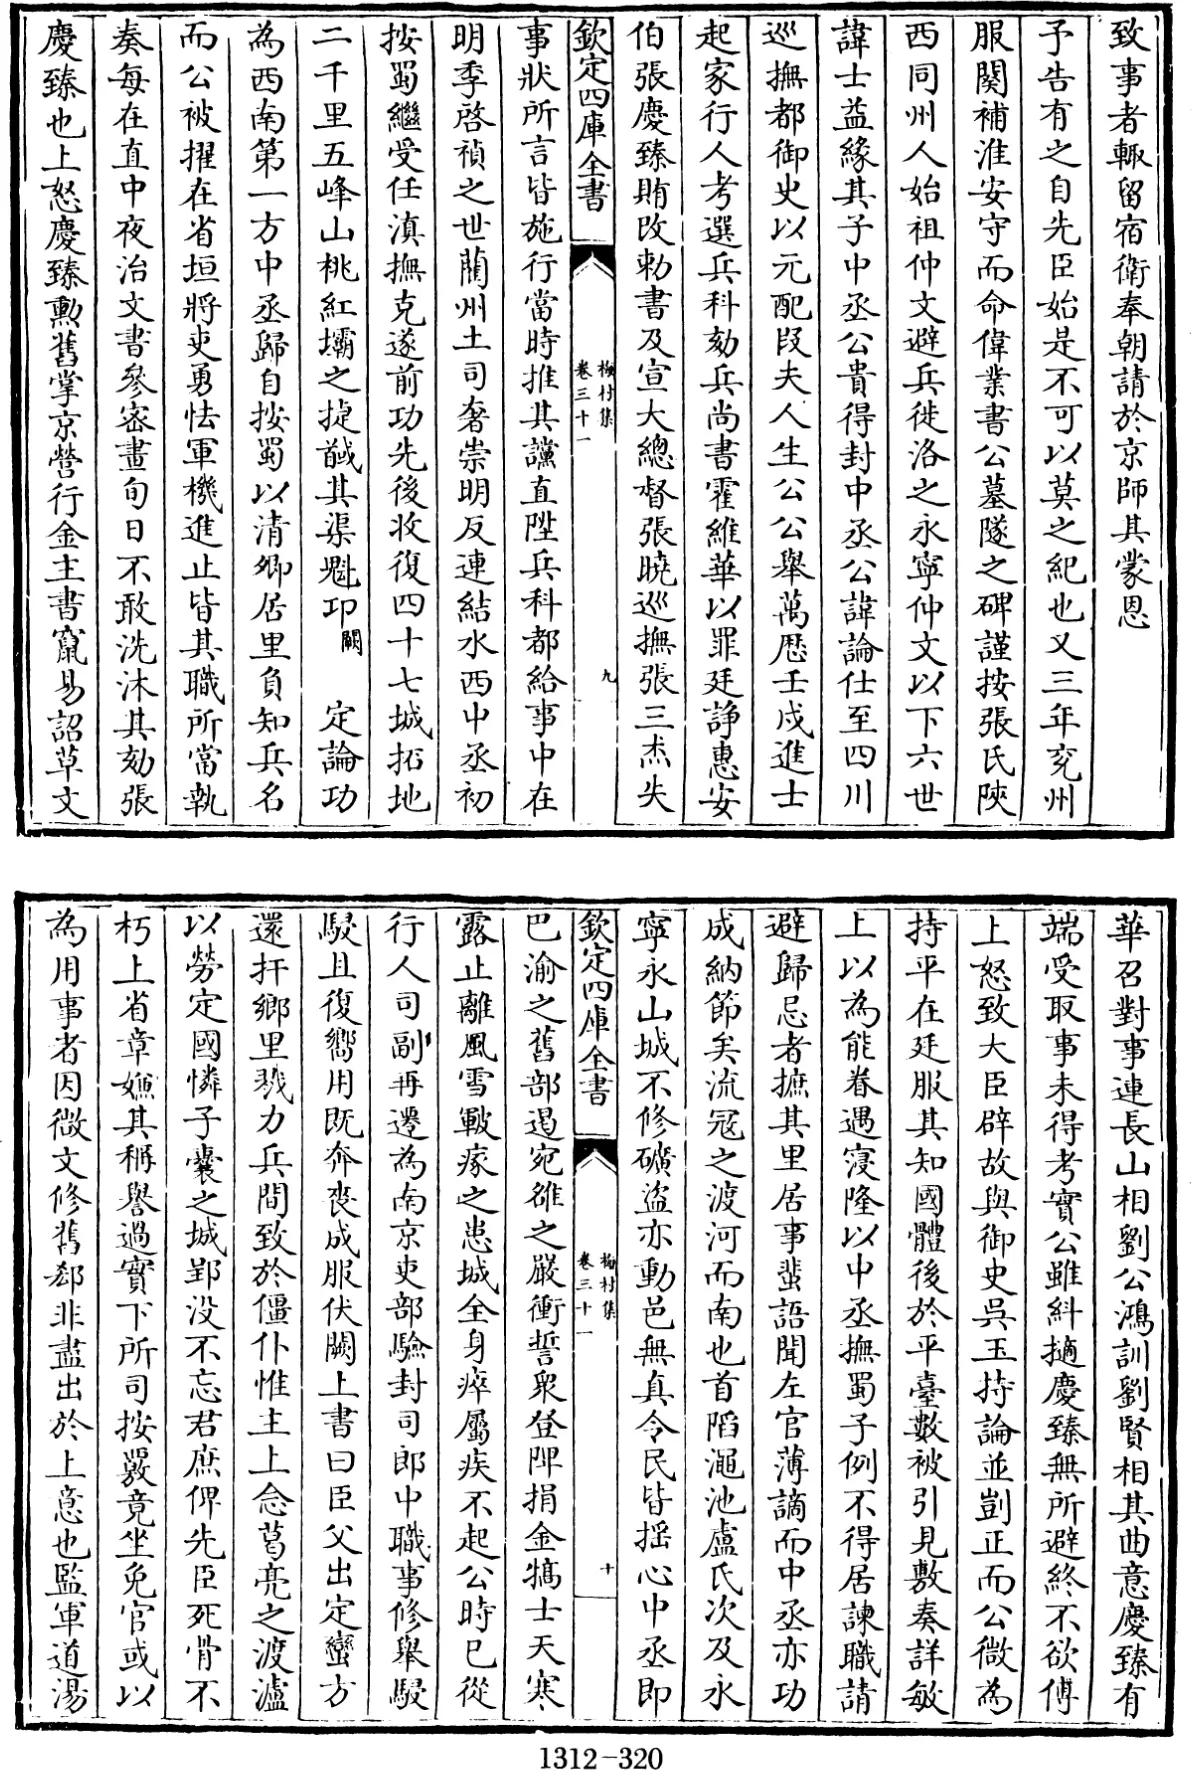 致事者輙留宿衛奉朝請於京師其蒙恩
予告有之自先臣始是不可以莫之紀也又三年兖州
服闋補淮安守而命偉業書公墓隧之碑謹按張氏陝
西同州人始祖仲文避兵徙洛之永寧仲文以下六世
諱士益緣其子中丞公貴得封中丞公諱論仕至四川
巡撫都御史以元配段夫人生公公舉萬歴壬戌進士
起家行人考選兵科劾兵尚書霍維華以罪廷諍惠安
伯張慶臻賄改勅書及宣大總督張曉巡撫張三杰失
欽定四庫全書
梅村集
卷三十一
九
事狀所言皆施行當時推其讜直陞兵科都給事中在
明季啓禎之世藺州土司奢崇明反連結水西中丞初
按蜀繼受任滇撫克遂前功先後收復四十七城拓地
二千里五峰山桃紅壩之捷馘其渠魁卭闕 定論功
為西南第一方中丞歸自按蜀以清卿居里負知兵名
而公被擢在省垣將吏勇怯軍機進止皆其職所當執
奏每在直中夜治文書參密畫旬日不敢洗沐其劾張
慶臻也上怒慶臻勲舊掌京營行金主書竄易詔草文
華召對事連長山相劉公鴻訓劉賢相其曲意慶臻有
端受取事未得考實公雖糾擿慶臻無所避終不欲傅
上怒致大臣辟故與御史吳玉持論並剴正而公微為
持平在廷服其知國體後於平臺數被引見敷奏詳敏
上以為能眷遇寖隆以中丞撫蜀子例不得居諫職請
避歸忌者摭其里居事蜚語聞左官薄謫而中丞亦功
成納節矣流冦之渡河而南也首陷澠池盧氏次及永
寧永山城不修礦盜亦動邑無真令民皆揺心中丞即
欽定四庫全書
梅村集
卷三十一
十
巴渝之舊部遏宛雒之嚴衝誓衆登陴捐金犒士天寒
露止離風雪皸瘃之患城全身瘁屬疾不起公時已從
行人司副再遷為南京吏部驗封司郎中職事修舉駸
駸且復嚮用既奔喪成服伏闕上書曰臣父出定蠻方
還扞鄉里戮力兵間致於僵仆惟主上念葛亮之渡瀘
以勞定國憐子囊之城郢没不忘君庶俾先臣死骨不
朽上省章嫌其稱譽過實下所司按覈竟坐免官或以
為用事者因微文修舊郄非盡出於上意也監軍道湯
1312-320